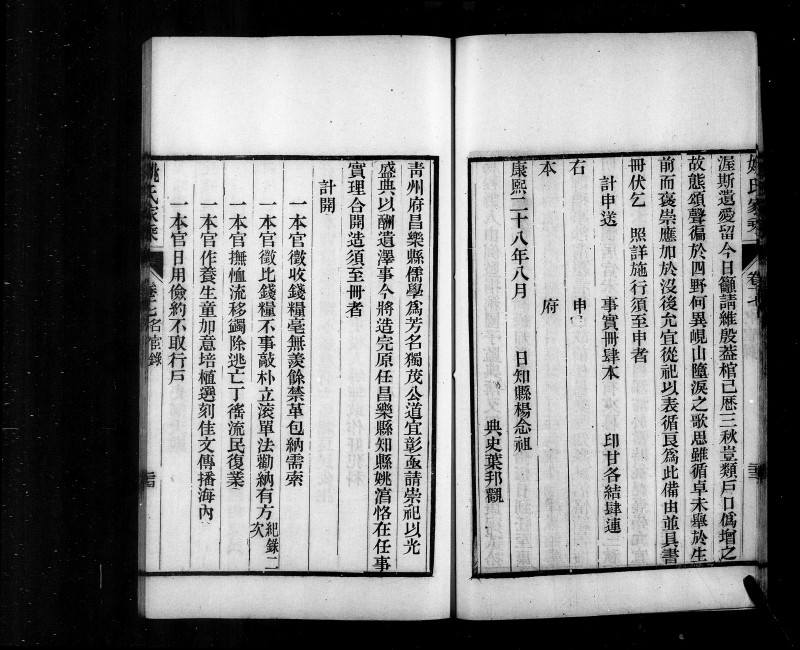 姚氏家乘
卷十七
渥斯遺愛留今日籲請維殷蓋棺已歷三秋豈類戶口偽增之
故態頌聲徧於四野何異峴山墮淚之歌思雖循卓未舉於生
前而褒崇應加於沒後允宜從祀以表循良爲此備由並具書
冊伏乞　照詳施行須至申者
計申送　事實冊肆本　印甘各結肆連
右　申
本　府
康熙二十八年八月　日知縣楊念祖
典史葉邦觀
青州府昌樂縣儒學爲芳名獨茂公道宜彰亟請崇祀以光
盛典以酬遺澤事今將造完原任昌樂縣知縣姚濱恪在任事
實理合開造須至冊者
計開
一本官徵收錢糧毫無羨餘禁革包納需索
一本官徵比錢糧不事敲朴立滾單法勸納有方紀錄二次
一本官撫恤流移蠲除逃亡丁徭流民復業
一本官作養生童加意培植選刻佳文傳播海內
一本官日用儉約不取行戶
姚氏家乘
卷十七名宦錄